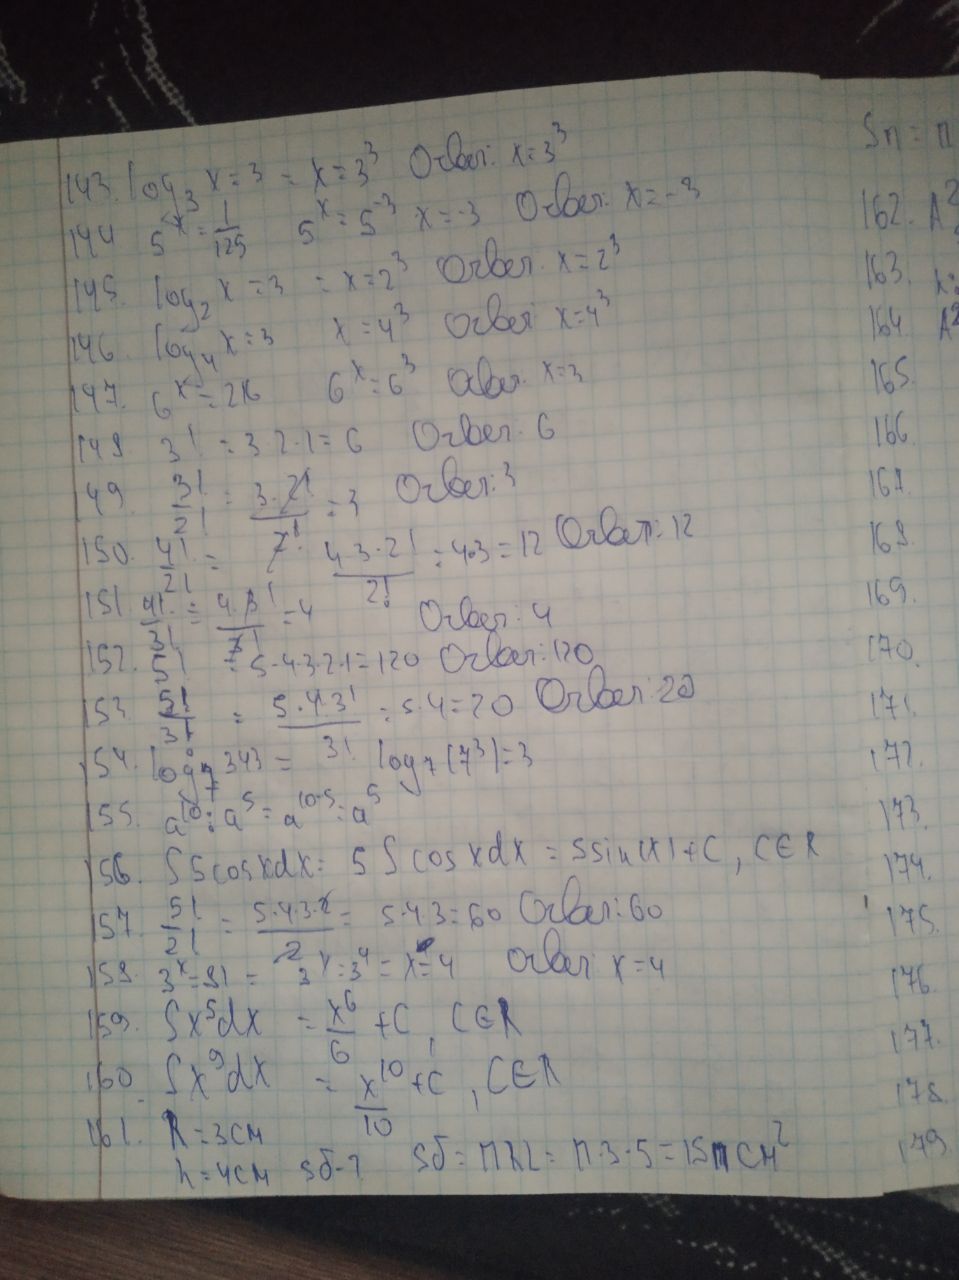 143. log₃ x = 3 = x = 3³ Ответ: x = 3³
144 5ˣ = 1/125 5ˣ = 5⁻³ x = -3 Ответ: x = -3
145. log₂ x = 3 = x = 2³ Ответ. x = 2³
146 log₄ x = 3 x = 4³ Ответ x = 4³
147. 6ˣ = 216 6ˣ = 6³ Ответ. x = 3
148 3! = 3·2·1 = 6 Ответ. 6
49. 3!/2! = 3·2!/2! = 3 Ответ: 3
150. 4!/2! = 4·3·2!/2! = 4·3 = 12 Ответ: 12
151. 4!/3! = 4·3!/3! = 4 Ответ: 4
152. 5! = 5·4·3·2·1 = 120 Ответ: 120
153 5!/3! = 5·4·3!/3! = 5·4 = 20 Ответ: 20
54. log₇ 343 = log₇(7³) = 3
155. a¹⁰ : a⁵ = a¹⁰⁻⁵ = a⁵
156. ∫5cosxdx = 5∫cosxdx = 5sin(x) + C, C∈R
157. 5!/2! = 5·4·3·2/2 = 5·4·3 = 60 Ответ: 60
158. 3ˣ = 81 = 3ˣ = 3⁴ = x = 4 Ответ x = 4
159. ∫x⁵dx = x⁶/6 + C, C∈R
160 ∫x⁹dx = x¹⁰/10 + C, C∈R
161. R = 3см
h = 4см Sб-? Sб = ПRL = П·3·5 = 15П см²
Sп = П
162. A²
163.
164 A²
165.
166
167.
168.
169.
170.
171.
172.
173.
174.
175.
176.
177.
178.
179